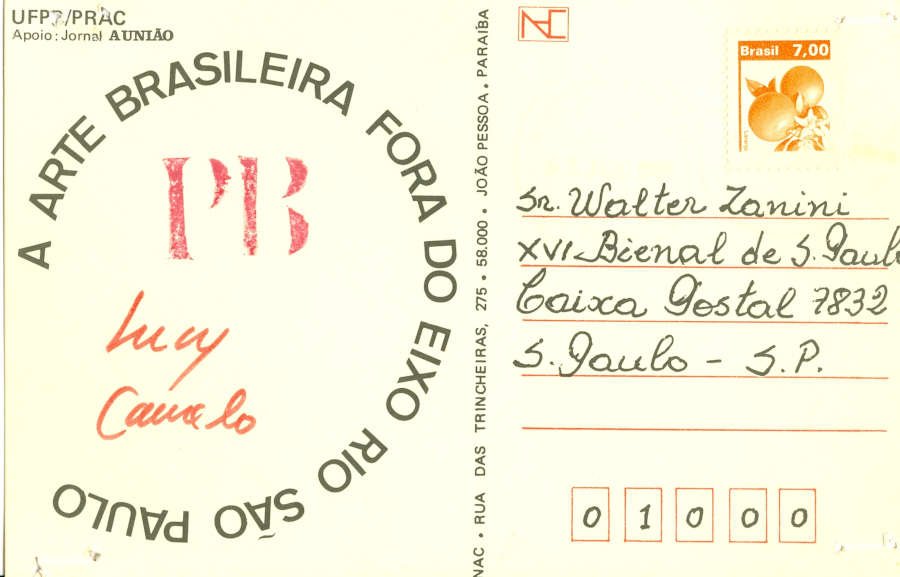 UFPB/PRAC
Apoio: Jornal A UNIÃO
A ARTE BRASILEIRA FORA DO EIXO RIO SÃO PAULO
PB
Lucy
Camelo
NAC • RUA DAS TRINCHEIRAS, 275 • 58.000 • JOÃO PESSOA • PARAIBA
NAC
Brasil 7,00
Sr. Walter Zanini
XVI Bienal de S. Paulo
Caixa Postal 7832
S. Paulo - S.P.
0 1 0 0 0